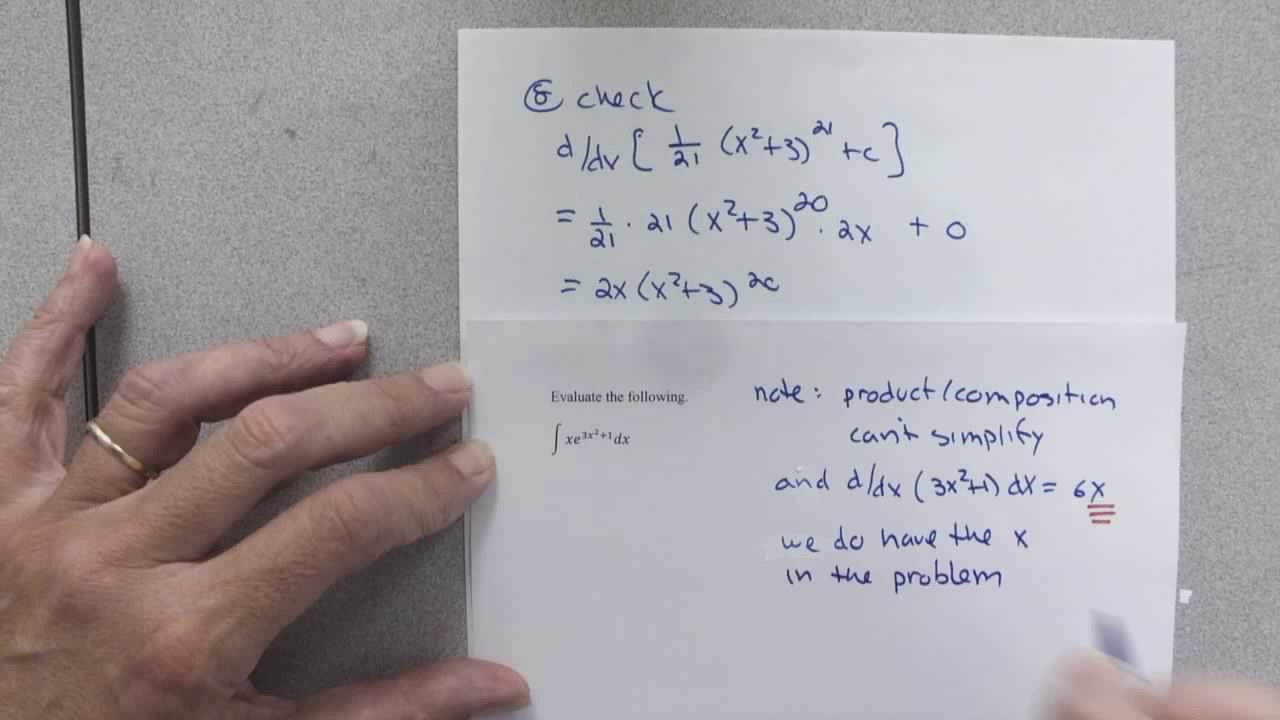 ⑧ check
d/dx [ 1/21 (x²+3)²¹ +c ]
= 1/21 · 21 (x²+3)²⁰ · 2x + 0
= 2x (x²+3)²⁰
Evaluate the following.
∫ xe^{3x²+1} dx
note: product/composition
can't simplify
and d/dx (3x²+1) dx = 6x
we do have the x
in the problem